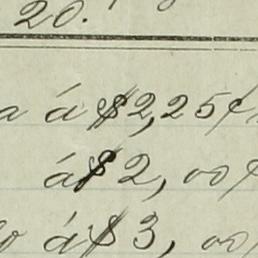 20.
a á $2,25¢
á $2,00¢
o á $3,00